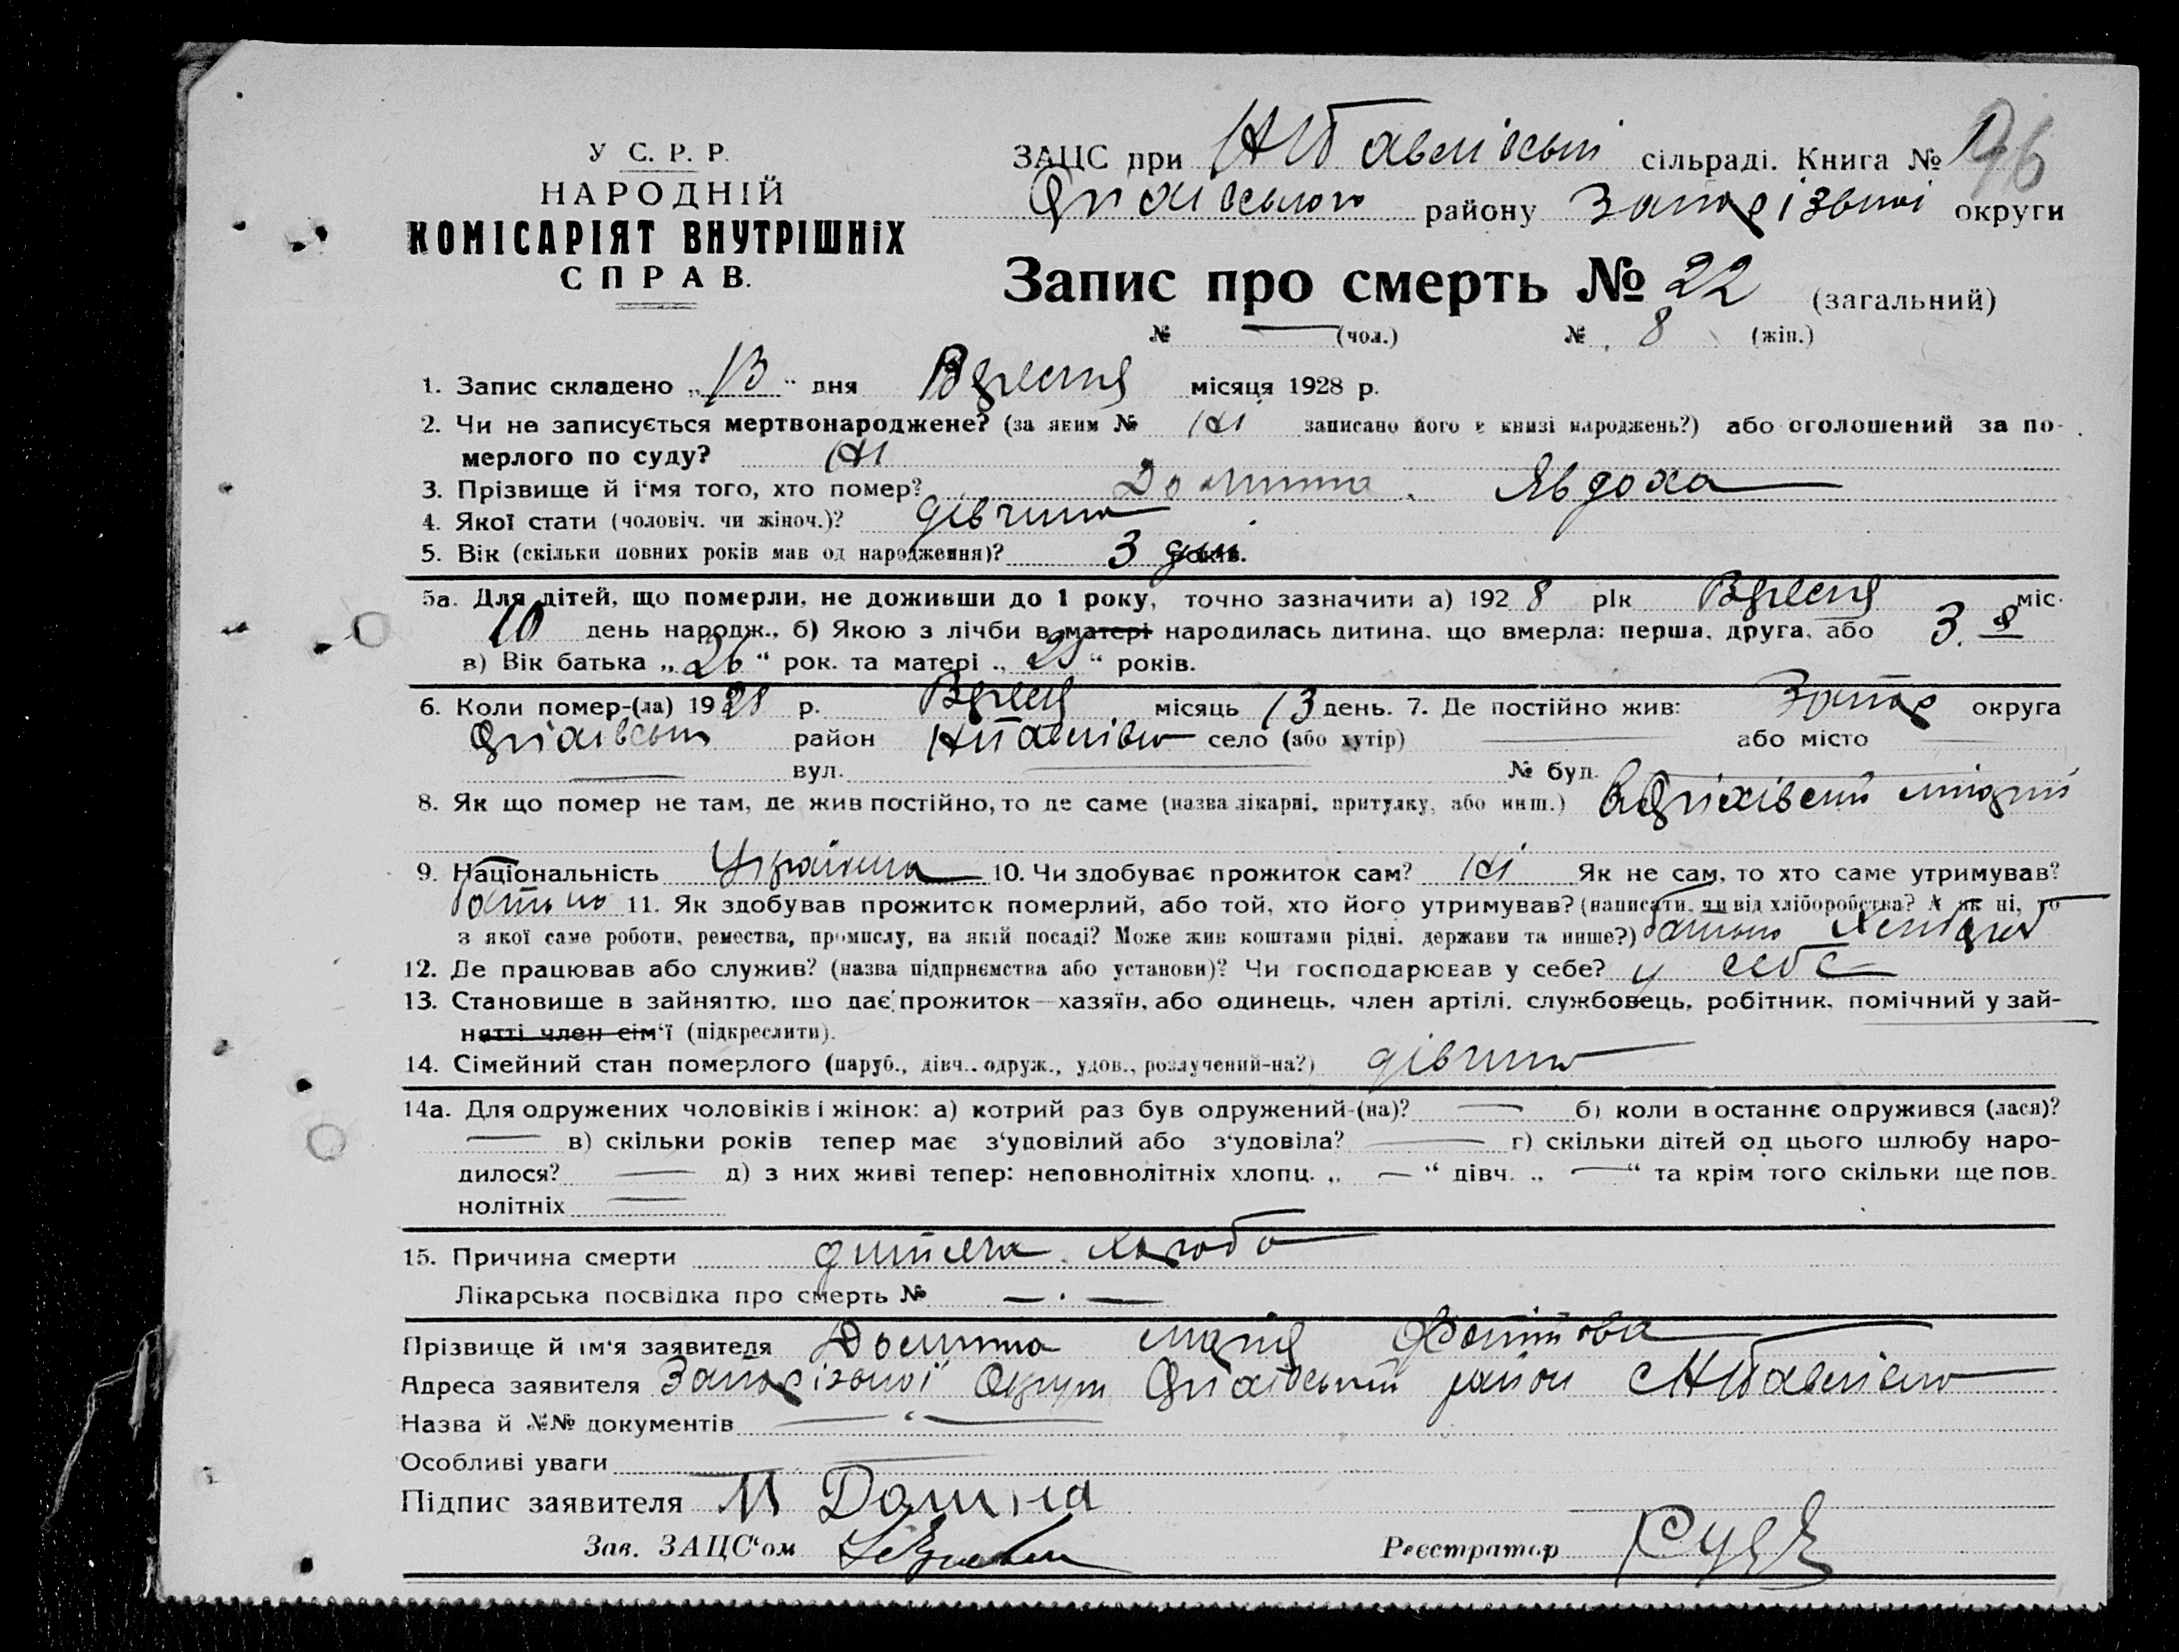 У С. Р. Р.
НАРОДНІЙ
КОМІСАРІЯТ ВНУТРІШНІХ
СПРАВ.
ЗАЦС при Н Павлівські сільраді. Книга № 1
96
Оріхівського району Запорізької округи
Запис про смерть № 22 (загальний)
№ — (чол.) № 8 (жін.)
1. Запис складено „13“ дня Вересня місяця 1928 р.
2. Чи не записується мертвонароджене? (за яким № ні записано його в книзі народжень?) або оголошений за по-
мерлого по суду? ні
3. Прізвище й ім'я того, хто помер? Долина Явдоха
4. Якої стати (чоловіч. чи жіноч.)? дівчина
5. Вік (скільки повних років мав од народження)? 3 дні років.
5а. Для дітей, що померли, не доживши до 1 року, точно зазначити а) 1928 рік Вересня міс.
10 день народж., б) Якою з лічби в матері народилась дитина, що вмерла: перша, друга, або 3.
в) Вік батька „26“ рок. та матері „ “ років.
6. Коли помер-(ла) 1928 р. Вересня місяць 13 день. 7. Де постійно жив: Запор округа
Оріхівськ район Н Павлівка село (або хутір) — або місто —
— вул. — № буд. —
8. Як що помер не там, де жив постійно, то де саме (назва лікарні, притулку, або инш.) в Оріхівський
9. Національність Українка 10. Чи здобуває прожиток сам? ні Як не сам, то хто саме утримував?
батько 11. Як здобував прожиток померлий, або той, хто його утримував? (написати, чи від хліборобства? А як ні, то
з якої саме роботи, ремества, промислу, на якій посаді? Може жив коштами рідні, держави та инше?) батько Хлібороб
12. Де працював або служив? (назва підприємства або установи)? Чи господарював у себе? у себе
13. Становище в зайняттю, що дає прожиток—хазяїн, або одинець, член артілі, службовець, робітник, помічний у зай-
нятті член сім'ї (підкреслити).
14. Сімейний стан померлого (паруб., дівч., одруж., удов., розлучений-на?) дівчина
14а. Для одружених чоловіків і жінок: а) котрий раз був одружений-(на)? — б) коли в останнє одружився (лася)?
— в) скільки років тепер має з'удовілий або з'удовіла? — г) скільки дітей од цього шлюбу наро-
дилося? — д) з них живі тепер: неповнолітніх хлопц. „—“ дівч. „—“ та крім того скільки ще пов.
нолітніх —
15. Причина смерти дитяча хороба
Лікарська посвідка про смерть № — . —
Прізвище й ім'я заявителя Долина Марія
Адреса заявителя Запорізької Округи Оріхівський район с Н Павлівка
Назва й №№ документів —
Особливі уваги —
Підпис заявителя М Долина
Зав. ЗАЦС'ом Реєстратор